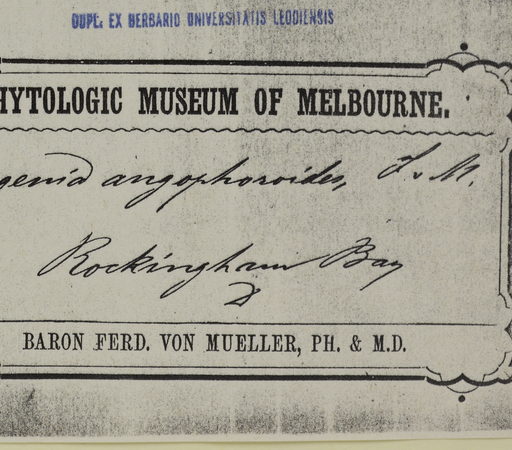 DUPL. EX HERBARIO UNIVERSITATIS LEODIENSIS
HYTOLOGIC MUSEUM OF MELBOURNE.
genia angophoroides, F. v. M.
Rockingham Bay
D
BARON FERD. VON MUELLER, PH. & M.D.